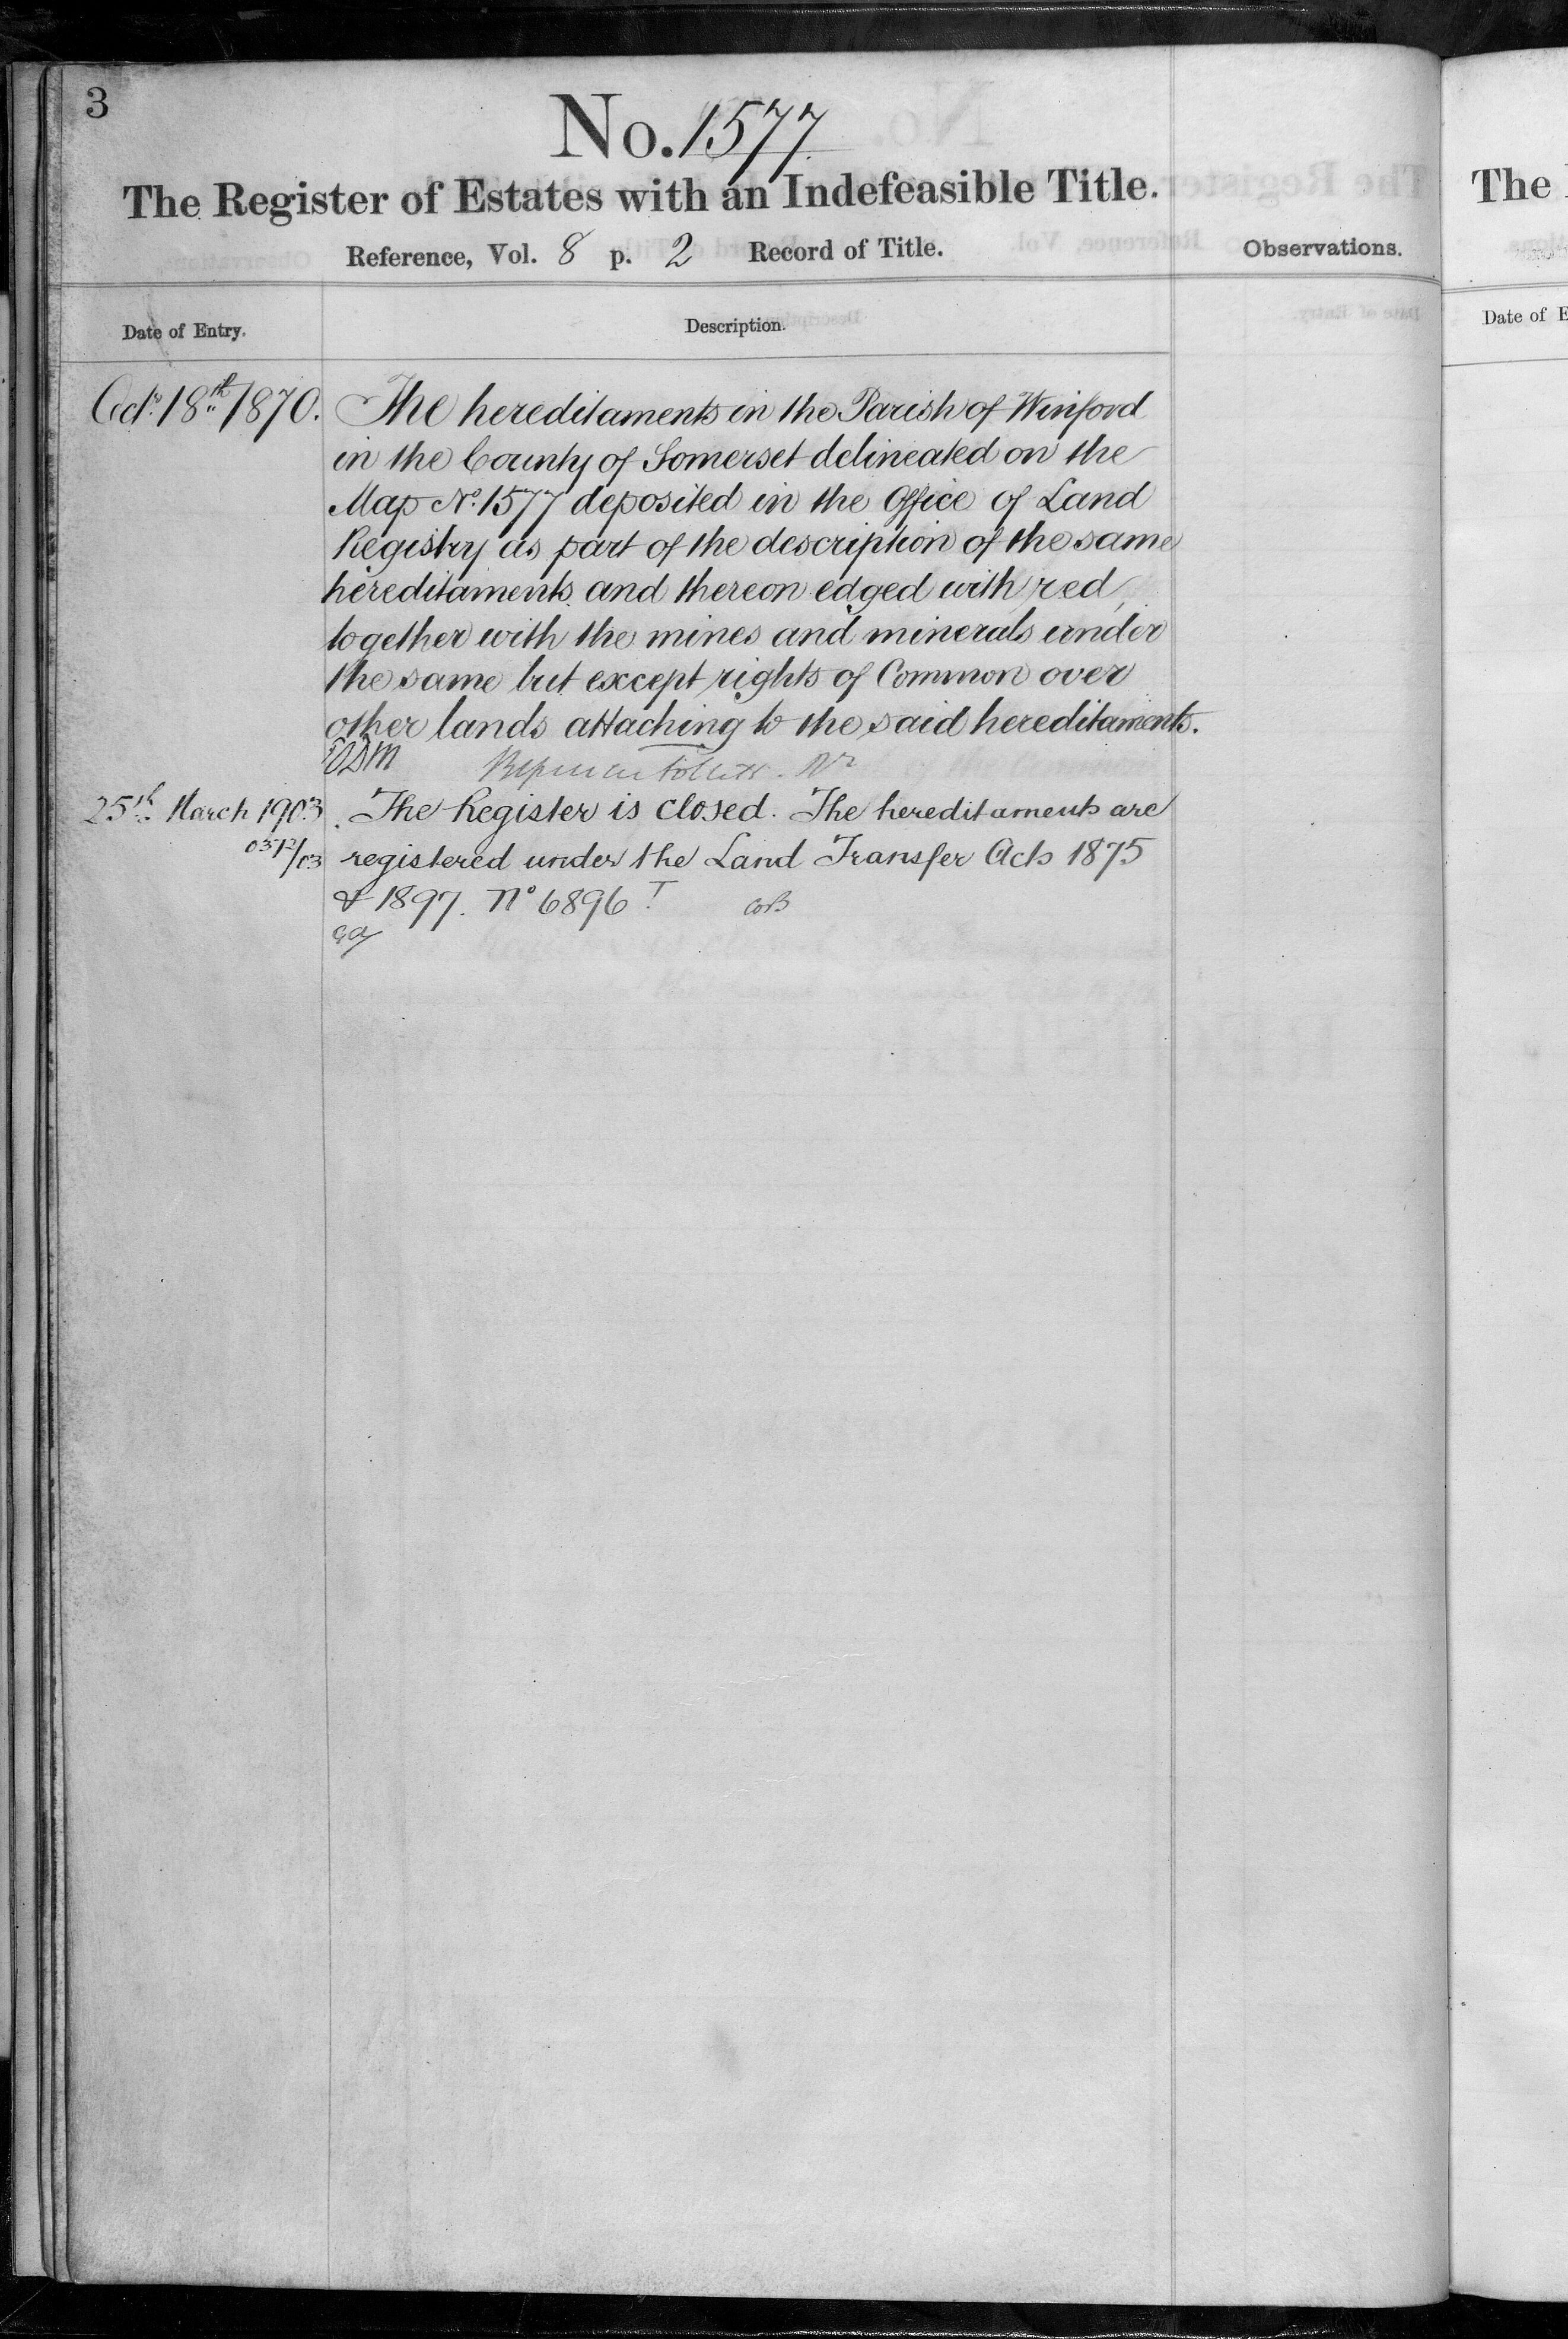 3
No. 1577
The Register of Estates with an Indefeasible Title.
Reference, Vol. 8 p. 2 Record of Title.
Observations.
Date of Entry.
Description.
Octr. 18th. 1870.
The hereditaments in the Parish of Winford
in the County of Somerset delineated on the
Map No. 1577 deposited in the Office of Land
Registry as part of the description of the same
hereditaments and thereon edged with red,
together with the mines and minerals under
the same but except rights of Common over
other lands attaching to the said hereditaments.
25th March 1903
The Register is closed. The hereditaments are
registered under the Land Transfer Acts 1875
& 1897. No 6896 T.
The
Date of E